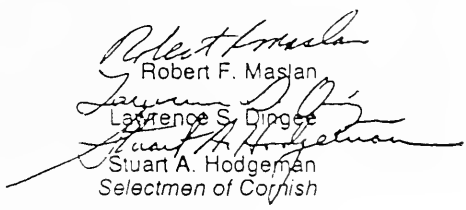 Robert F. Maslan
Robert F. Maslan
Lawrence S. Dingee
Stuart A. Hodgeman
Stuart A. Hodgeman
Selectmen of Cornish